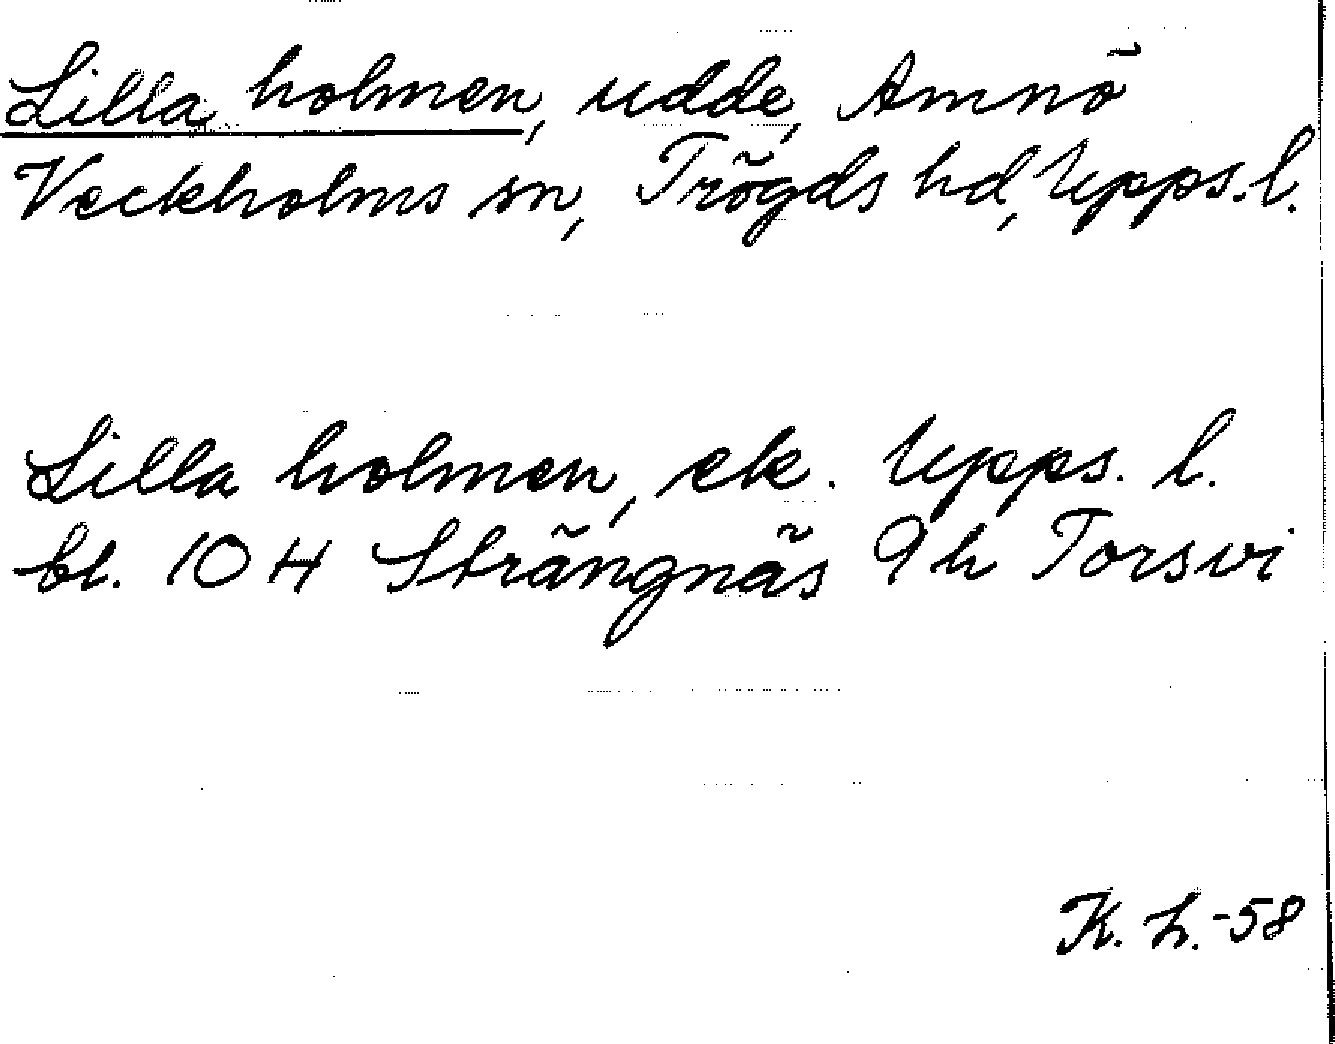 Lilla holmen, udde, Amnö
Veckholms sn, Trögds hd, Upps. l.
Lilla holmen, ek. Upps. l.
bl. 10 H Strängnäs 9 h Torsvi
K. L. -58